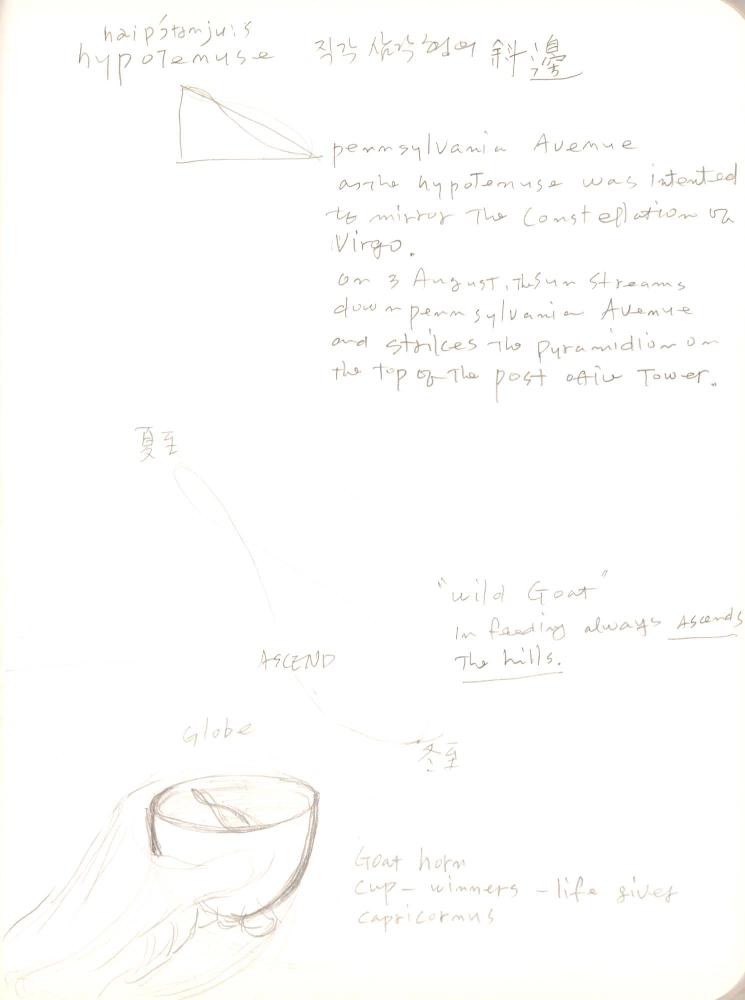 haip'ótənju:s
hypotenuse 직각 삼각형의 斜邊
pennsylvania Avenue
as the hypotenuse was intented
to mirror The Constellation of
Virgo.
on 3 August, the sun streams
down pennsylvania Avenue
and strikes the pyramidion on
the top of the post office Tower.
夏至
"wild Goat"
in feeding always Ascends
The hills.
ASCEND
Globe
冬至
Goat horn
cup - winners - life giver
capricornus